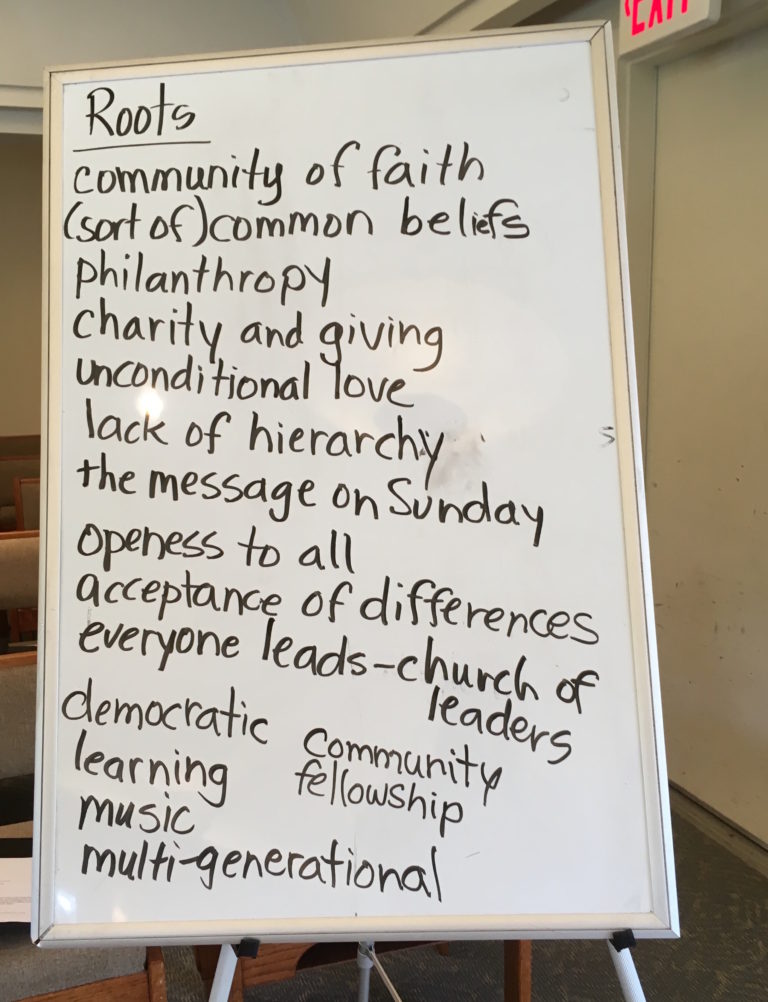 EXIT
Roots
community of faith
(sort of) common beliefs
philanthropy
charity and giving
unconditional love
lack of hierarchy
s
the message on Sunday
openess to all
acceptance of differences
everyone leads-church of
leaders
democratic
learning
music
multi-generational
community
fellowship